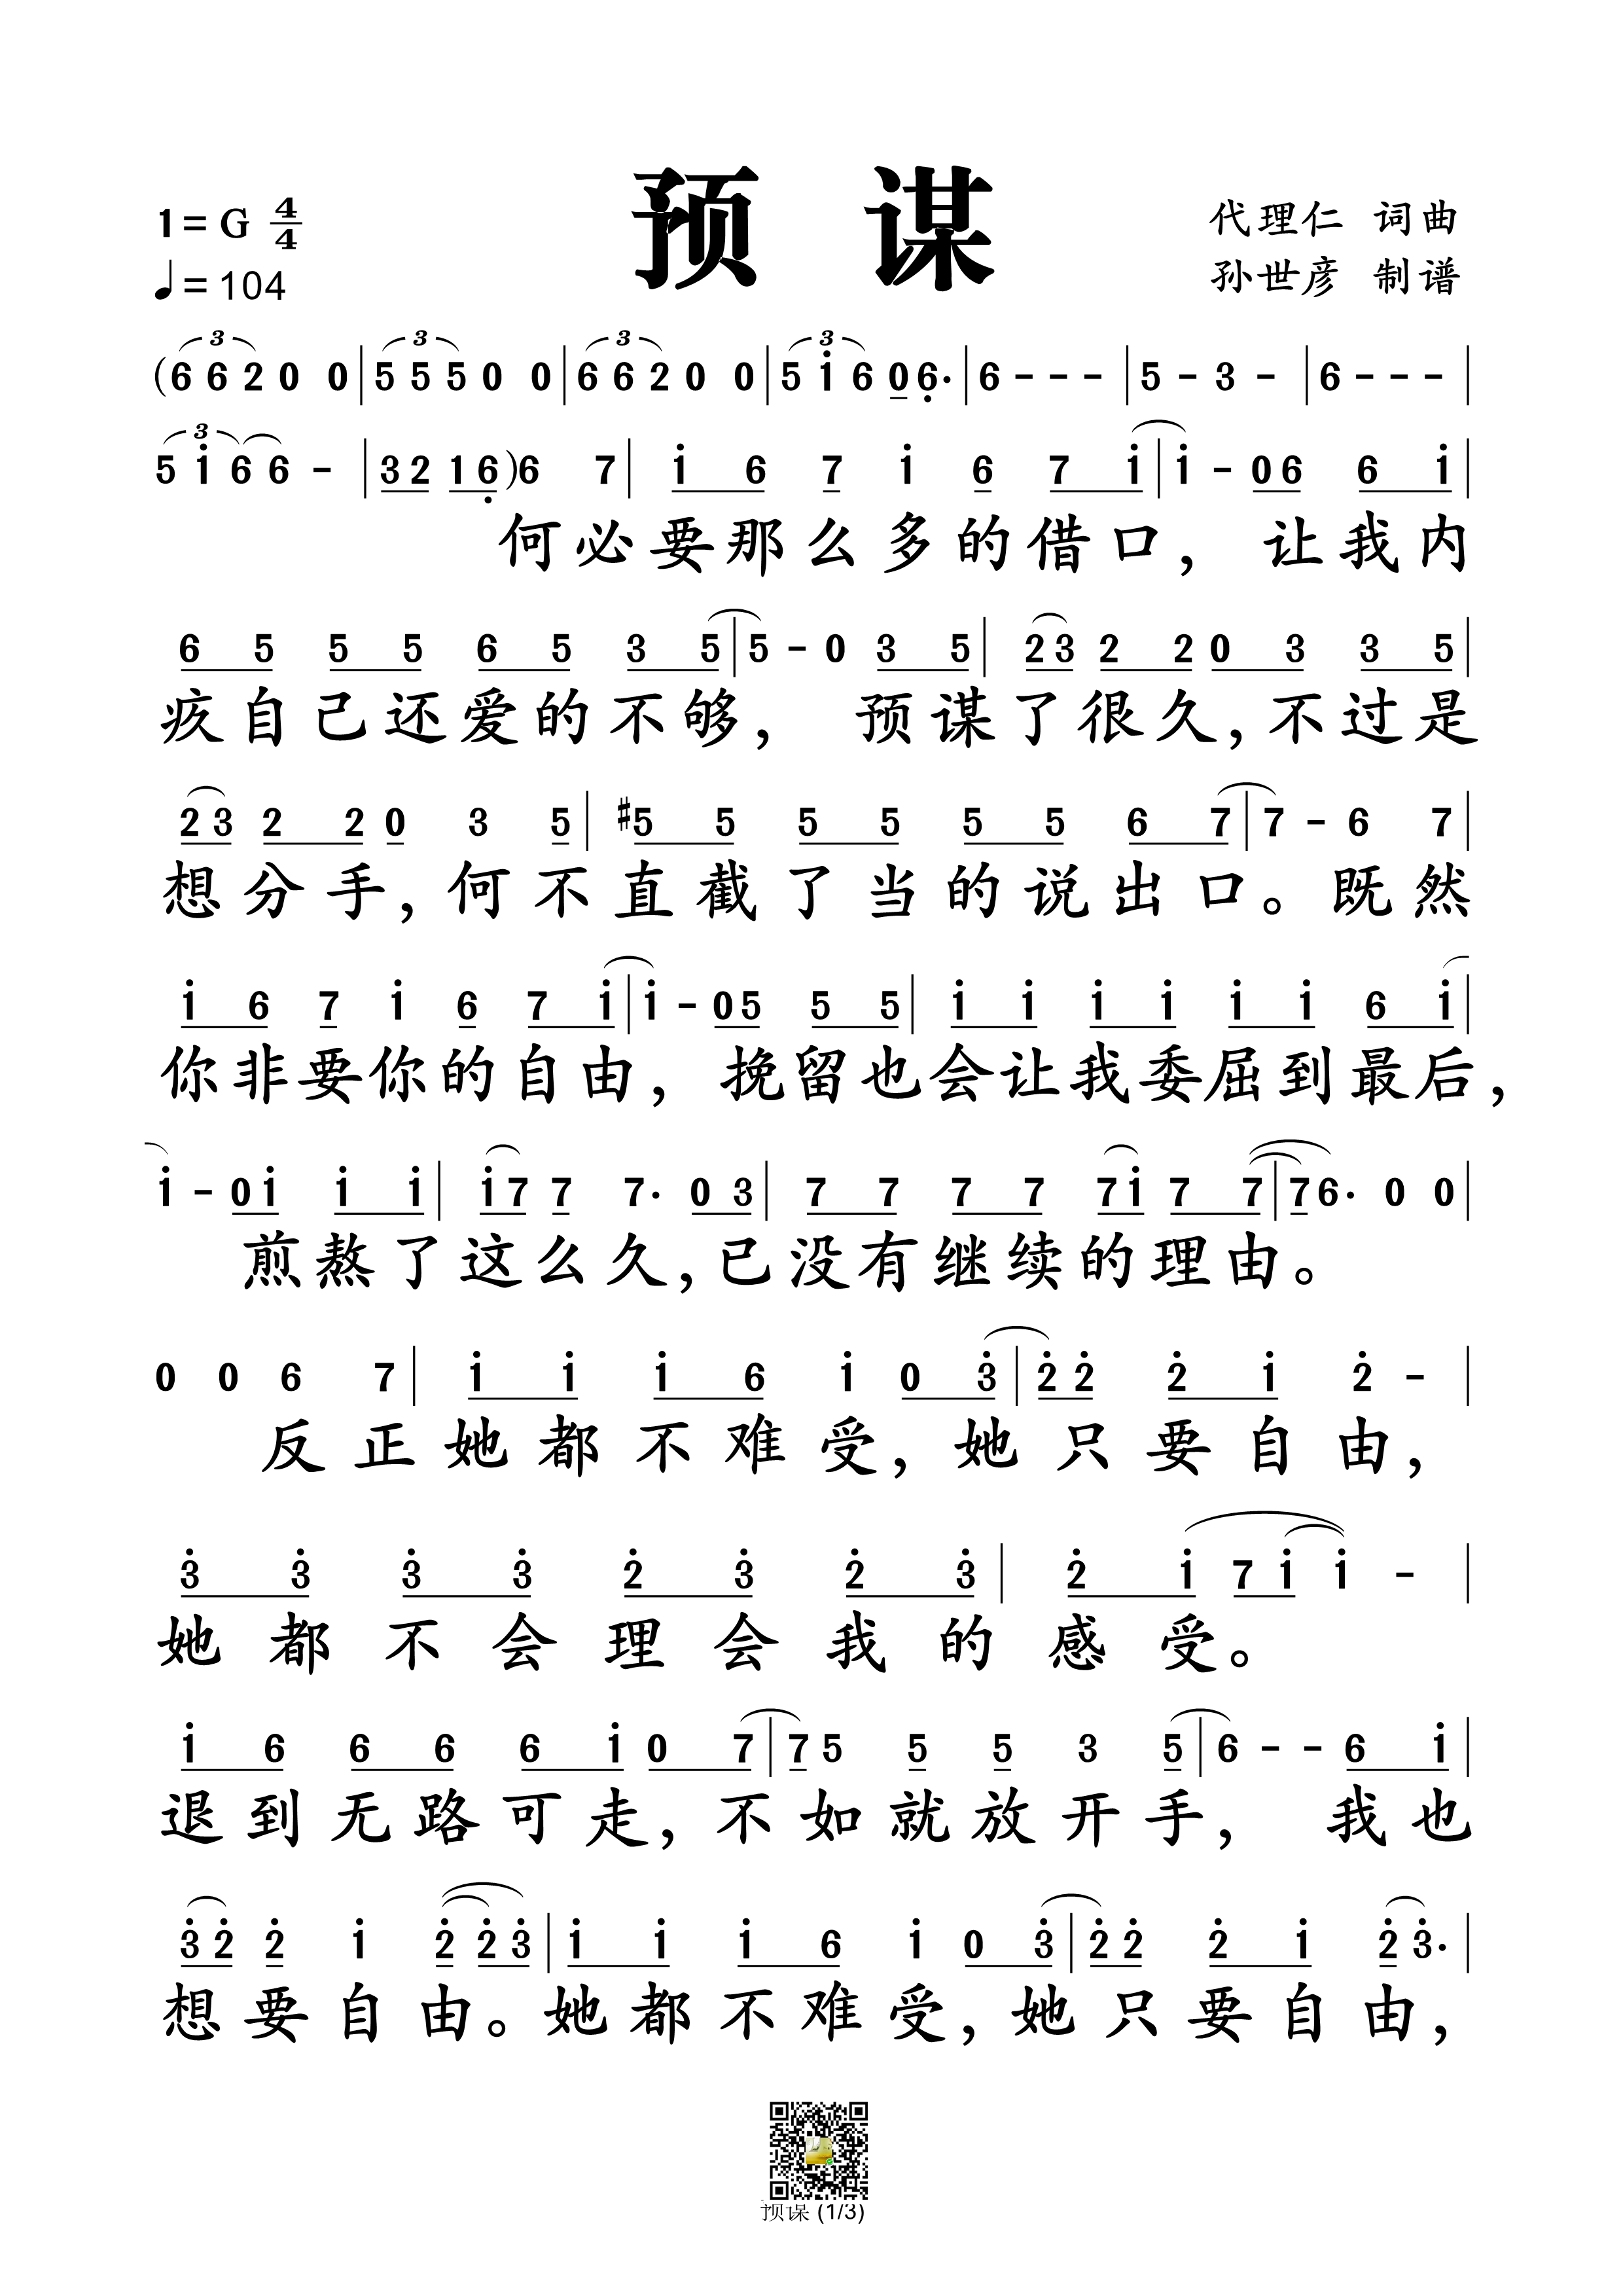 预 谋
1=G 4/4
♩=104
代理仁 词曲
孙世彦 制谱
(6 6 2 0 0 | 5 5 5 0 0 | 6 6 2 0 0 | 5 i 6 0 6̣· | 6 - - - | 5 - 3 - | 6 - - - |
5 i 6 6 - | 3 2 1 6̣ )6 7 | i 6 7 i 6 7 i | i - 0 6 6 i |
何必要那么多的借口，让我内
6 5 5 5 6 5 3 5 | 5 - 0 3 5 | 2 3 2 2 0 3 3 5 |
疚自己还爱的不够，预谋了很久，不过是
2 3 2 2 0 3 5 | #5 5 5 5 5 5 6 7 | 7 - 6 7 |
想分手，何不直截了当的说出口。既然
i 6 7 i 6 7 i | i - 0 5 5 5 | i i i i i i 6 i |
你非要你的自由，挽留也会让我委屈到最后，
i - 0 i i i | i 7 7 7· 0 3 | 7 7 7 7 7 i 7 7 | 7 6· 0 0 |
煎熬了这么久，已没有继续的理由。
0 0 6 7 | i i i 6 i 0 3̇ | 2̇ 2̇ 2̇ i 2̇ - |
反正她都不难受，她只要自由，
3̇ 3̇ 3̇ 3̇ 2̇ 3̇ 2̇ 3̇ | 2̇ i 7 i i - |
她都不会理会我的感受。
i 6 6 6 6 i 0 7 | 7 5 5 5 3 5 | 6 - - 6 i |
退到无路可走，不如就放开手，我也
3̇ 2̇ 2̇ i 2̇ 2̇ 3̇ | i i i 6 i 0 3̇ | 2̇ 2̇ 2̇ i 2̇ 3̇· |
想要自由。她都不难受，她只要自由，
预谋 (1/3)